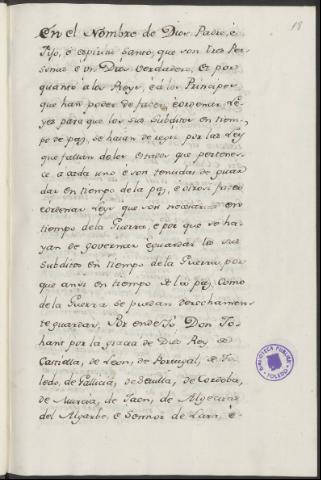 18
En el Nombre de Dios Padre, é
Fijo, é espiritu Santo, que son tres Per-
sonas é un Dios verdadero. Et por
quanto á los Reyes, é á los Principes
que han poder de facer, é ordenar Le-
yes para que los sus subditos en tiem-
po de paz, se haian de regir por las Leys
que fallan de los estados que pertenes-
ce a cada uno é son tenudos de guar-
dar en tiempo de la paz, é otrosi facer
é ordenar Leys que son necesarias en
tiempo de la Guerra, é por que se ha-
yan de governar é guardar los sus
subditos en tiempo de la Guerra, por
que ansi en tiempo de la paz, como
de la Guerra se puedan derechamen-
te guardar. Por ende Yo Don Jo-
hant por la gracia de Dios Rey de
Castilla, de Leon, de Portugal, de To-
ledo, de Gallicia, de Sevilla, de Cordoba,
de Murcia, de Jaen, de Algecira
del Algarbe, é Sennor de Lara, é
BIBLIOTECA PUBLICA
TOLEDO